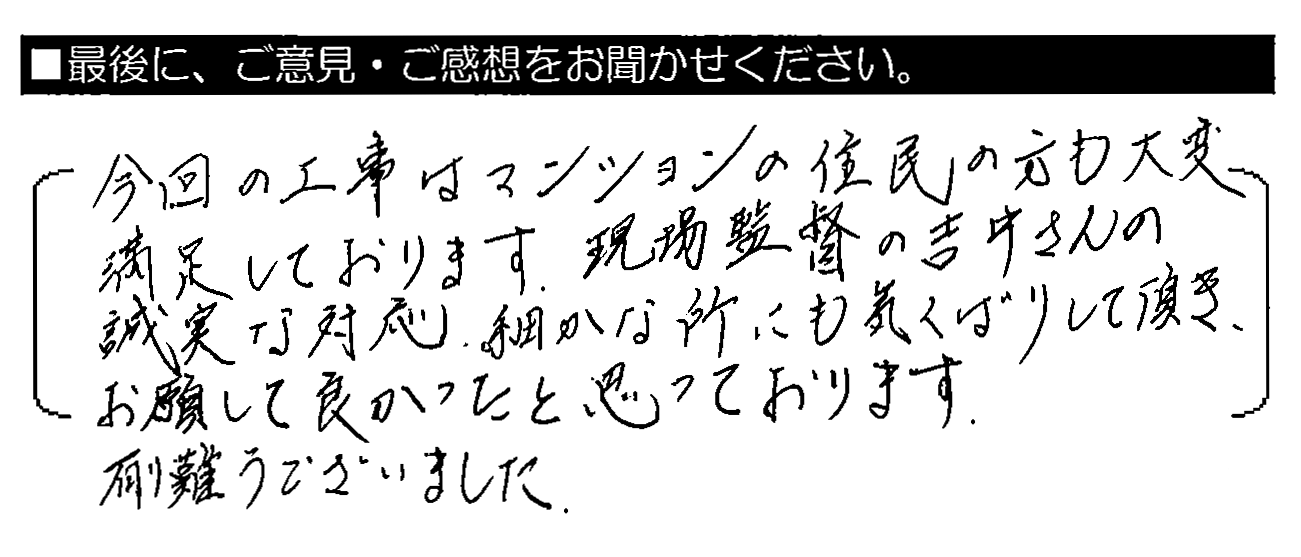 ■最後に、ご意見・ご感想をお聞かせください。
今回の工事はマンションの住民の方も大変
満足しております。現場監督の吉中さんの
誠実な対応、細かな所にも気くばりして頂き、
お願して良かったと思っております。
有難うございました。